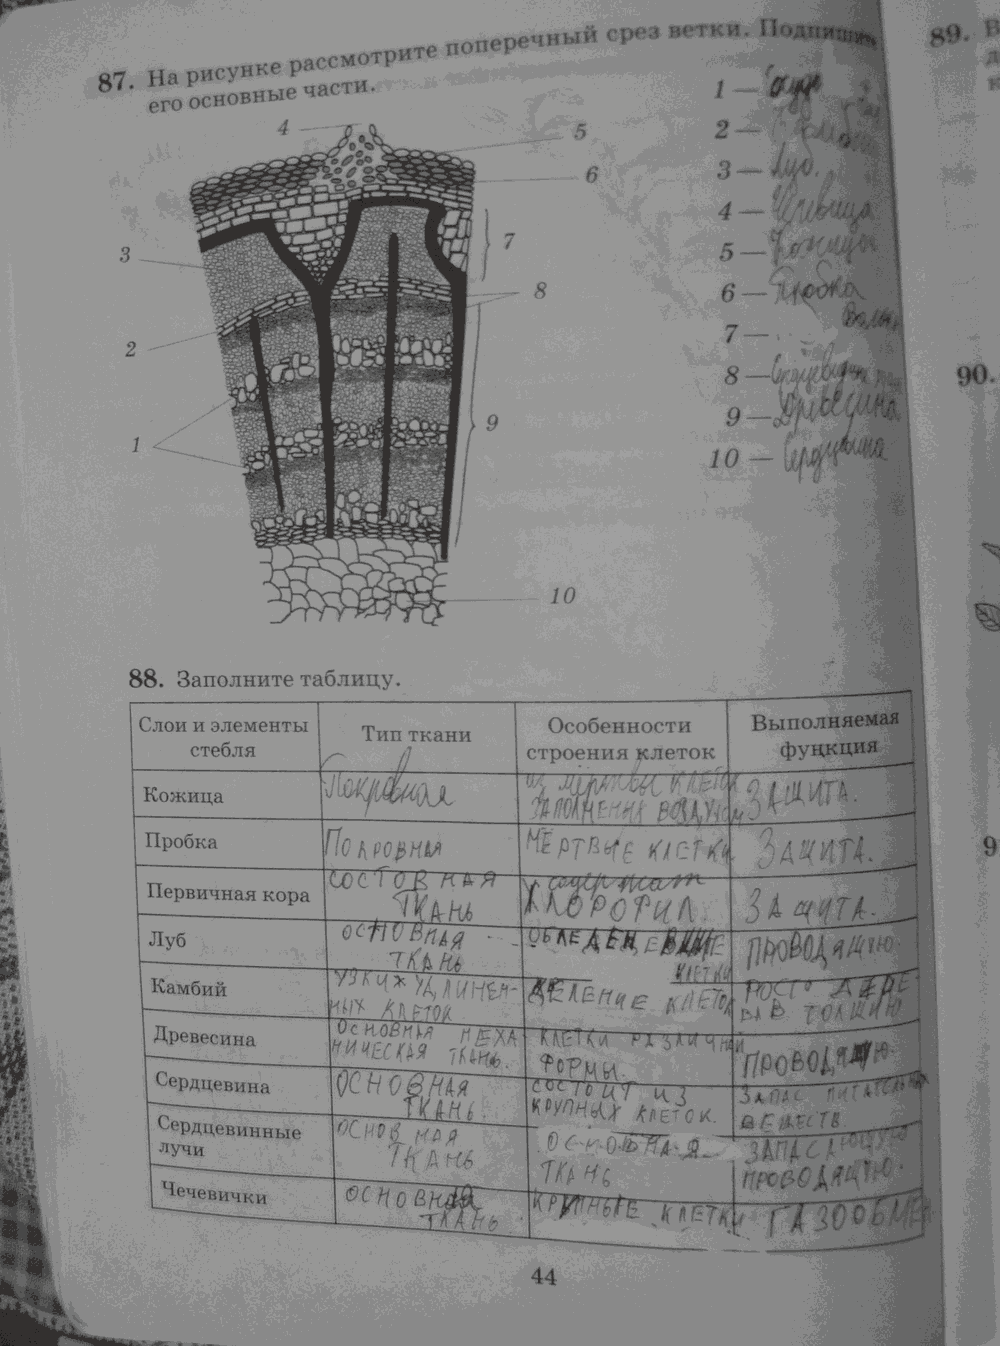 87. На рисунке рассмотрите поперечный срез ветки. Подпишите
его основные части.
89. В
1 —
4
5
2 —
6
3 — Луб.
4 — Чечевица
7
5 — Кожица
3
6 — Пробка
8
7 —
2
8 —
90.
9 — Древесина
9
1
10 — Сердцевина
10
88. Заполните таблицу.
Слои и элементы
стебля
Тип ткани
Особенности
строения клеток
Выполняемая
функция
Кожица
Покровная
из мёртвы клеток
заполнения воздухом
ЗАЩИТА.
Пробка
Покровная
МЁРТВЫЕ КЛЕТКИ.
ЗАЩИТА.
Первичная кора
СОСТОВНАЯ
ТКАНЬ
содержат
ХЛОРОФИЛ.
ЗАЩИТА.
Луб
ОСНОВНАЯ
ТКАНЬ
КЛЕТКИ
ПРОВОДЯЩУЮ.
Камбий
УЗКИХ УДЛИНЕН-
НЫХ КЛЕТОК
ДЕЛЕНИЕ КЛЕТОК
РОСТ ДЕРЕ
ВА В ТОЛЩИНУ
Древесина
ОСНОВНАЯ МЕХА
НИЧЕСКАЯ ТКАНЬ.
КЛЕТКИ РАЗЛИЧНОЙ
ФОРМЫ.
ПРОВОДЯЩУЮ.
Сердцевина
ОСНОВНАЯ
ТКАНЬ
СОСТОИТ ИЗ
КРУПНЫХ КЛЕТОК.
ЗАПАС ПИТАТЕЛЬНЫХ
ВЕЩЕСТВ.
Сердцевинные
лучи
ОСНОВНАЯ
ТКАНЬ
ОСНОВНАЯ
ТКАНЬ
ЗАПАСАЮЩУЮ
ПРОВОДЯЩУЮ.
Чечевички
ОСНОВНАЯ
ТКАНЬ
КРУПНЫЕ КЛЕТКИ
ГАЗООБМЕН
44